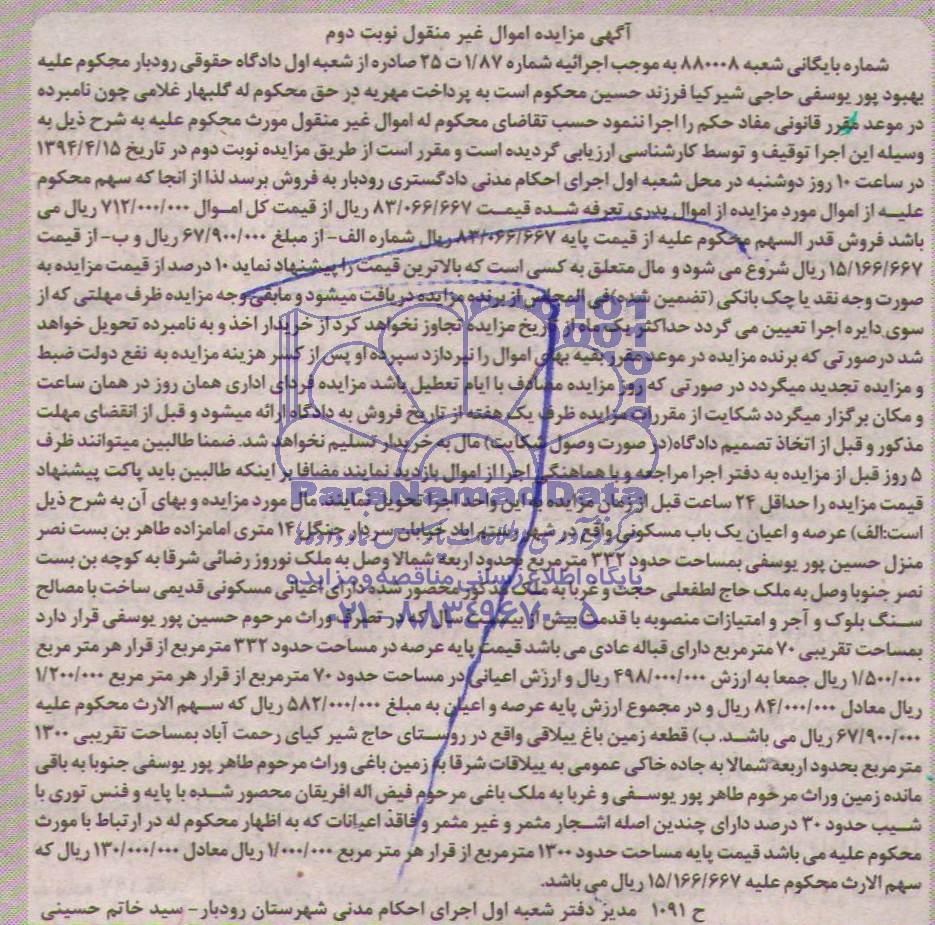 آگهی مزایده اموال غیر منقول نوبت دوم
شماره بایگانی شعبه ۸۸۰۰۰۸ به موجب اجرائیه شماره ۱/۸۷ ت ۲۵ صادره از شعبه اول دادگاه حقوقی رودبار محکوم علیه
بهبود پور یوسفی حاجی شیرکیا فرزند حسین محکوم است به پرداخت مهریه در حق محکوم له گلبهار غلامی چون نامبرده
در موعد مقرر قانونی مفاد حکم را اجرا ننمود حسب تقاضای محکوم له اموال غیر منقول مورث محکوم علیه به شرح ذیل به
وسیله این اجرا توقیف و توسط کارشناسی ارزیابی گردیده است و مقرر است از طریق مزایده نوبت دوم در تاریخ ۱۳۹۴/۴/۱۵
در ساعت ۱۰ روز دوشنبه در محل شعبه اول اجرای احکام مدنی دادگستری رودبار به فروش برسد لذا از انجا که سهم محکوم
علیه از اموال مورد مزایده از اموال پدری تعرفه شده قیمت ۸۳/۰۶۶/۶۶۷ ریال از قیمت کل اموال ۷۱۲/۰۰۰/۰۰۰ ریال می
باشد فروش قدر السهم محکوم علیه از قیمت پایه ۸۳/۰۶۶/۶۶۷ ریال شماره الف- از مبلغ ۶۷/۹۰۰/۰۰۰ ریال و ب- از قیمت
۱۵/۱۶۶/۶۶۷ ریال شروع می شود و مال متعلق به کسی است که بالاترین قیمت را پیشنهاد نماید ۱۰ درصد از قیمت مزایده به
صورت وجه نقد یا چک بانکی (تضمین شده) فی المجلس از برنده مزایده دریافت میشود و مابقی وجه مزایده ظرف مهلتی که از
سوی دایره اجرا تعیین می گردد حداکثر یک ماه از تاریخ مزایده تجاوز نخواهد کرد از خریدار اخذ و به نامبرده تحویل خواهد
شد درصورتی که برنده مزایده در موعد مقرر بقیه بهای اموال را نپردازد سپرده او پس از کسر هزینه مزایده به نفع دولت ضبط
و مزایده تجدید میگردد در صورتی که روز مزایده مصادف با ایام تعطیل باشد مزایده فردای اداری همان روز در همان ساعت
و مکان برگزار میگردد شکایت از مقررات مزایده ظرف یک هفته از تاریخ فروش به دادگاه ارائه میشود و قبل از انقضای مهلت
مذکور و قبل از اتخاذ تصمیم دادگاه(در صورت وصول شکایت) مال به خریدار تسلیم نخواهد شد. ضمنا طالبین میتوانند ظرف
۵ روز قبل از مزایده به دفتر اجرا مراجعه و با هماهنگی اجرا از اموال بازدید نمایند مضافا بر اینکه طالبین باید پاکت پیشنهاد
قیمت مزایده را حداقل ۲۴ ساعت قبل از زمان مزایده به این واحد اجرا تحویل نمایند. مال مورد مزایده و بهای آن به شرح ذیل
است:الف) عرصه و اعیان یک باب مسکونی واقع در شهر رستم اباد خیابان سردار جنگل ۱۴ متری امامزاده طاهر بن بست نصر
منزل حسین پور یوسفی بمساحت حدود ۳۳۲ مترمربع بحدود اربعه شمالا وصل به ملک نوروز رضائی شرقا به کوچه بن بست
نصر جنوبا وصل به ملک حاج لطفعلی حجت و غربا به ملک مذکور محصور شده دارای اعیانی مسکونی قدیمی ساخت با مصالح
سنگ بلوک و آجر و امتیازات منصوبه با قدمت بیش از بیست سال که در تصرف وراث مرحوم حسین پور یوسفی قرار دارد
بمساحت تقریبی ۷۰ مترمربع دارای قباله عادی می باشد قیمت پایه عرصه در مساحت حدود ۳۳۲ مترمربع از قرار هر متر مربع
۱/۵۰۰/۰۰۰ ریال جمعا به ارزش ۴۹۸/۰۰۰/۰۰۰ ریال و ارزش اعیانی در مساحت حدود ۷۰ مترمربع از قرار هر متر مربع ۱/۲۰۰/۰۰۰
ریال معادل ۸۴/۰۰۰/۰۰۰ ریال و در مجموع ارزش پایه عرصه و اعیان به مبلغ ۵۸۲/۰۰۰/۰۰۰ ریال که سهم الارث محکوم علیه
۶۷/۹۰۰/۰۰۰ ریال می باشد. ب) قطعه زمین باغ ییلاقی واقع در روستای حاج شیر کیای رحمت آباد بمساحت تقریبی ۱۳۰۰
مترمربع بحدود اربعه شمالا به جاده خاکی عمومی به ییلاقات شرقا به زمین باغی وراث مرحوم طاهر پور یوسفی جنوبا به باقی
مانده زمین وراث مرحوم طاهر پور یوسفی و غربا به ملک باغی مرحوم فیض اله افریقان محصور شده با پایه و فنس توری با
شیب حدود ۳۰ درصد دارای چندین اصله اشجار مثمر و غیر مثمر و فاقد اعیانات که به اظهار محکوم له در ارتباط با مورث
محکوم علیه می باشد قیمت پایه مساحت حدود ۱۳۰۰ مترمربع از قرار هر متر مربع ۱/۰۰۰/۰۰۰ ریال معادل ۱۳۰/۰۰۰/۰۰۰ ریال که
سهم الارث محکوم علیه ۱۵/۱۶۶/۶۶۷ ریال می باشد.
ح ۱۰۹۱ مدیر دفتر شعبه اول اجرای احکام مدنی شهرستان رودبار- سید خاتم حسینی
ParaNamadData
پایگاه اطلاع رسانی مناقصه و مزایده
۰۲۱-۸۸۳۴۹۶۷۰-۵